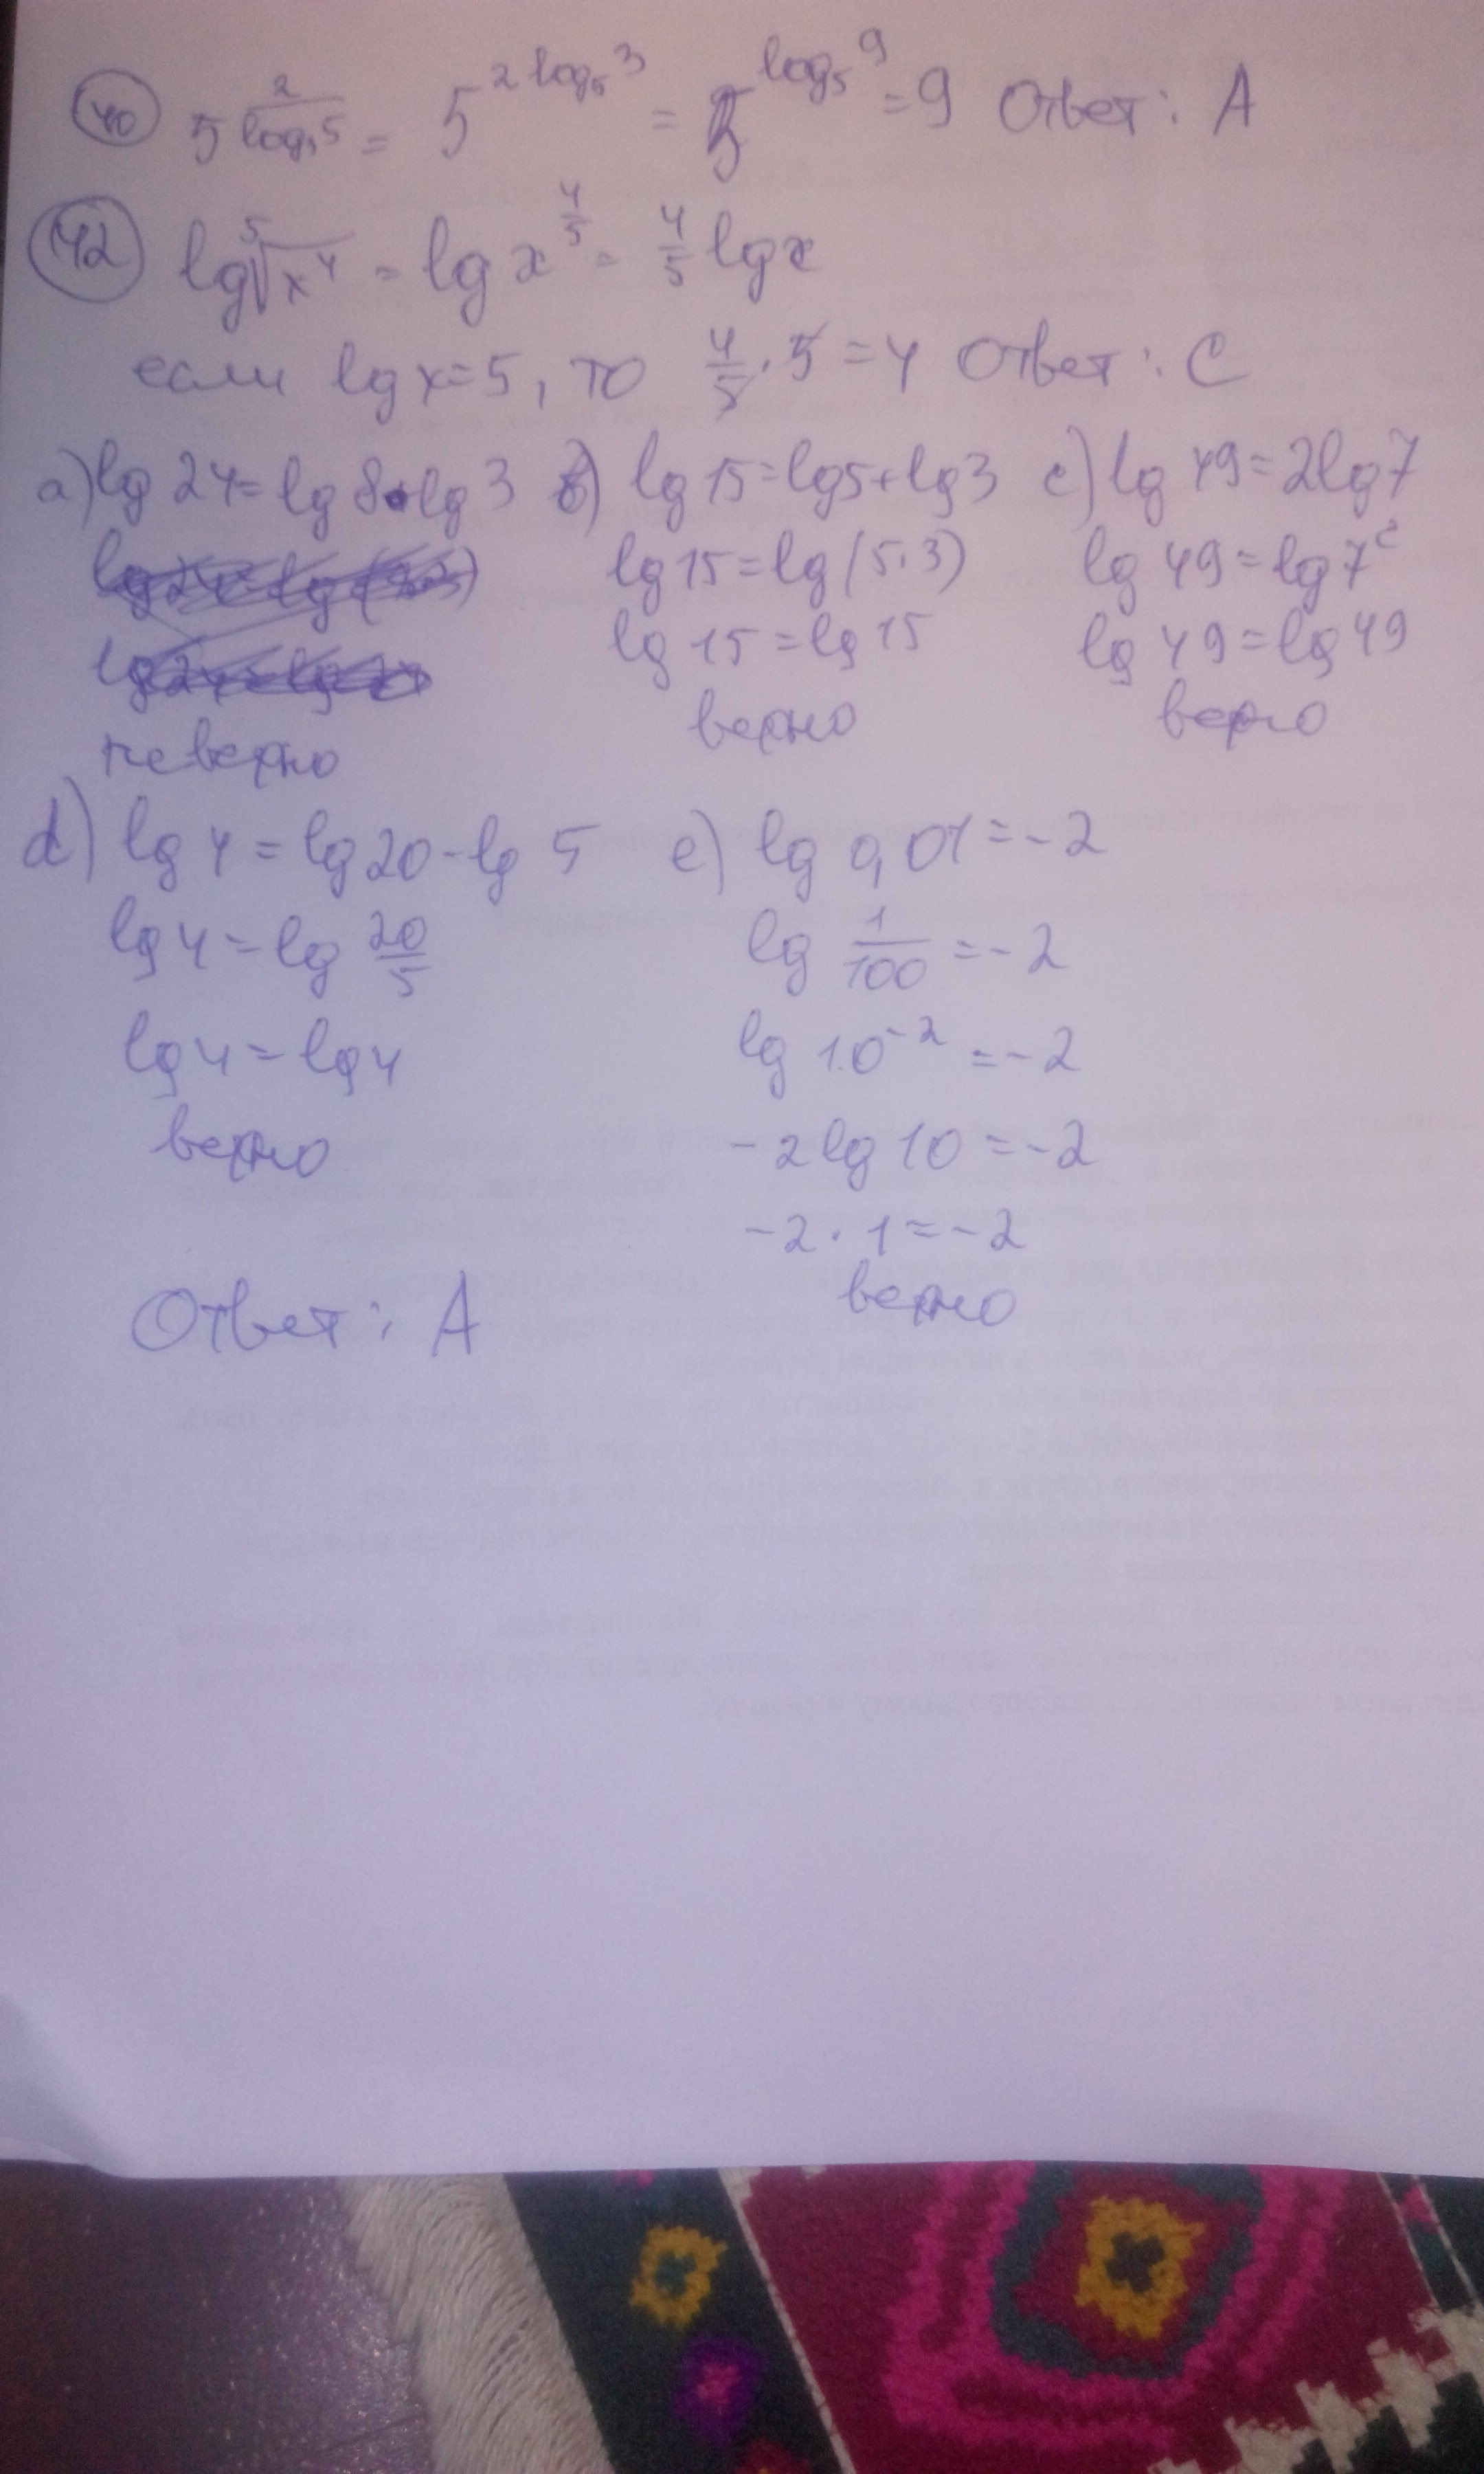 40 5^(2/log₃5) = 5^(2 log₅ 3) = 5^(log₅ 9) = 9 Ответ: А
42 lg ⁵√x⁴ = lg x^(4/5) = 4/5 lg x
если lg x = 5, то 4/5 · 5 = 4 Ответ: С
a) lg 24 = lg 8 · lg 3
неверно
b) lg 15 = lg 5 + lg 3
lg 15 = lg (5·3)
lg 15 = lg 15
верно
c) lg 49 = 2 lg 7
lg 49 = lg 7²
lg 49 = lg 49
верно
d) lg 4 = lg 20 - lg 5
lg 4 = lg 20/5
lg 4 = lg 4
верно
e) lg 0,01 = -2
lg 1/100 = -2
lg 10⁻² = -2
-2 lg 10 = -2
-2 · 1 = -2
верно
Ответ: А